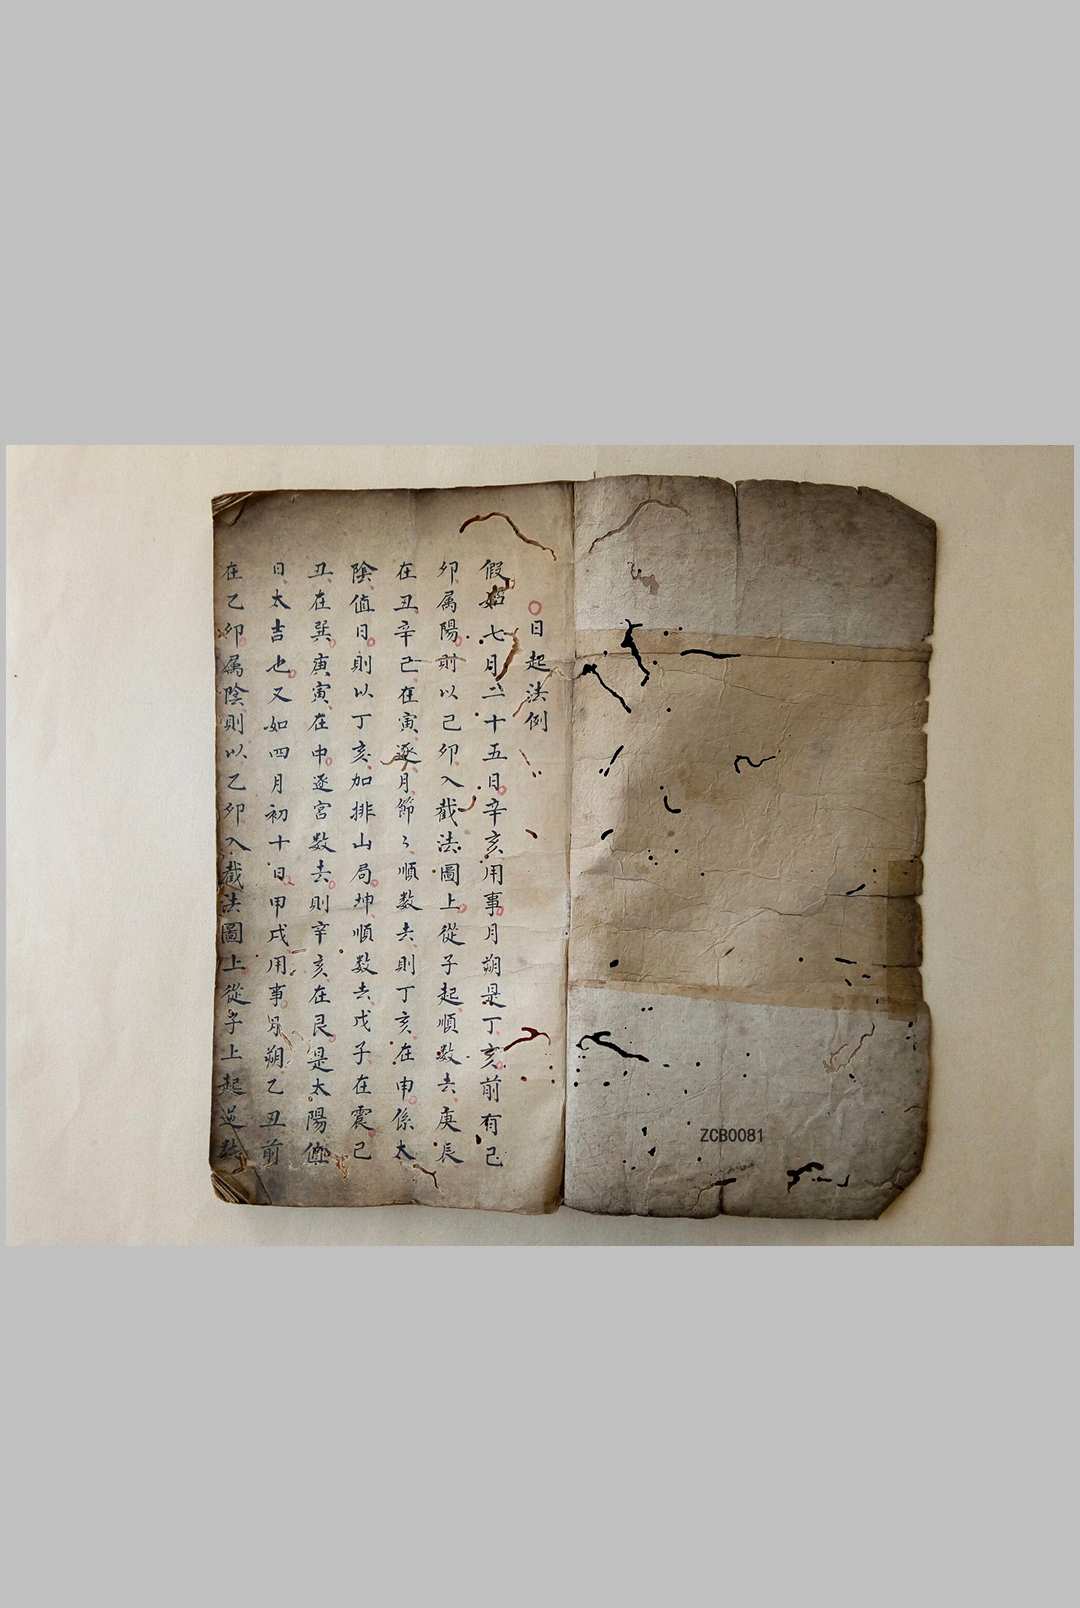 ○日起法例
假如七月二十五日辛亥用事月朔是丁亥前有己
卯属陽則以己卯入截法圖上從子起順數去庚辰
在丑辛己在寅逐月節々順數去則丁亥在申係太
陰值日則以丁亥加排山局坤順數去戊子在震己
丑在巽庚寅在中逐宮數去則辛亥在艮是太陽值
日太吉也又如四月初十日甲戌用事月朔乙丑前
在乙卯属陰則以乙卯入截法圖上從子上起逆
ZCB0081